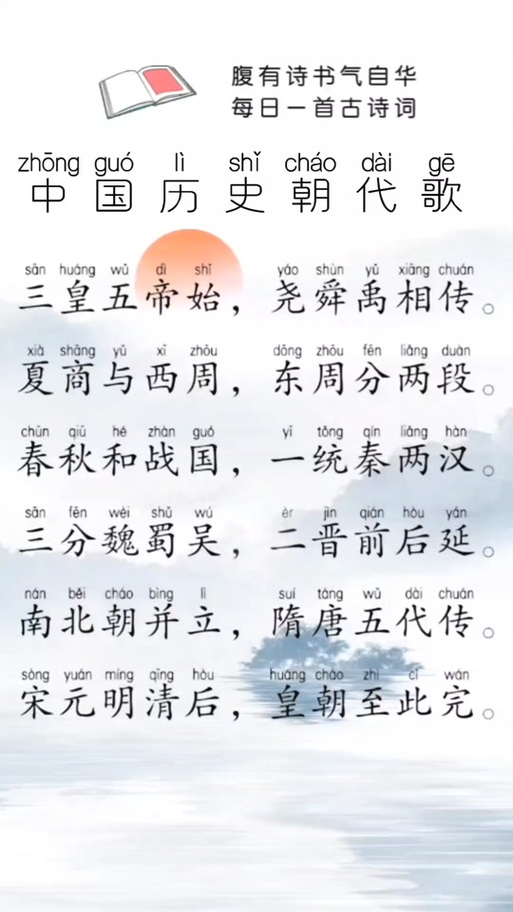 腹有诗书气自华
每日一首古诗词
zhōng guó lì shǐ cháo dài gē
中国历史朝代歌
sān huáng wǔ dì shǐ yáo shùn yǔ xiāng chuán
三皇五帝始，尧舜禹相传。
xià shāng yǔ xī zhōu dōng zhōu fēn liǎng duàn
夏商与西周，东周分两段。
chūn qiū hé zhàn guó yī tǒng qín liǎng hàn
春秋和战国，一统秦两汉。
sān fēn wèi shǔ wú èr jìn qián hòu yán
三分魏蜀吴，二晋前后延。
nán běi cháo bìng lì suí táng wǔ dài chuán
南北朝并立，隋唐五代传。
sòng yuán míng qīng hòu huáng cháo zhì cǐ wán
宋元明清后，皇朝至此完。